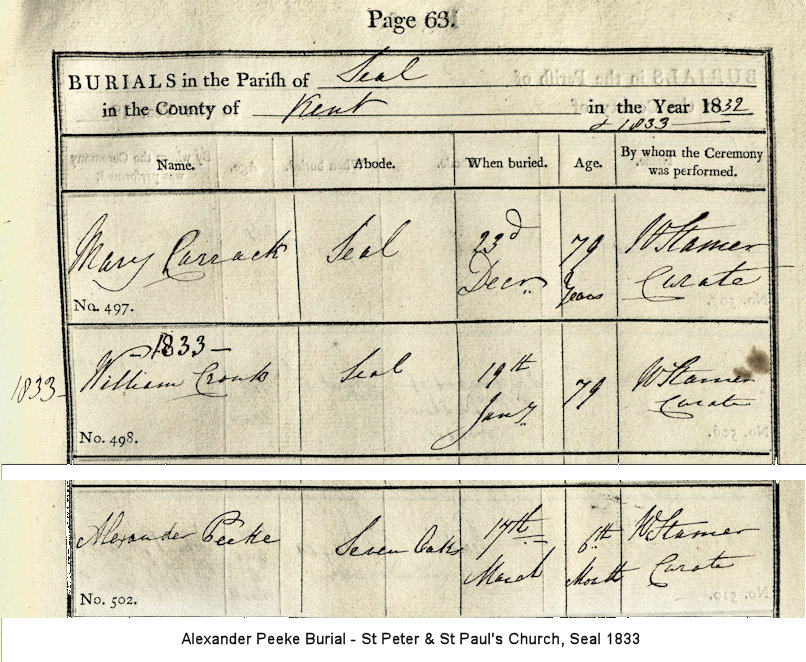 Page 63.
BURIALS in the Parish of Seal
in the County of Kent in the Year 1832
& 1833
Name. Abode. When buried. Age. By whom the Ceremony was performed.
Mary Carrack Seal 23d Decr. 79 Years W Stamer Curate
No. 497.
1833 – 1833 –
William Cronk Seal 19th Jany. 79 W Stamer Curate
No. 498.
Alexander Peeke Seven Oaks 17th March 6th Month W Stamer Curate
No. 502.
Alexander Peeke Burial - St Peter & St Paul's Church, Seal 1833